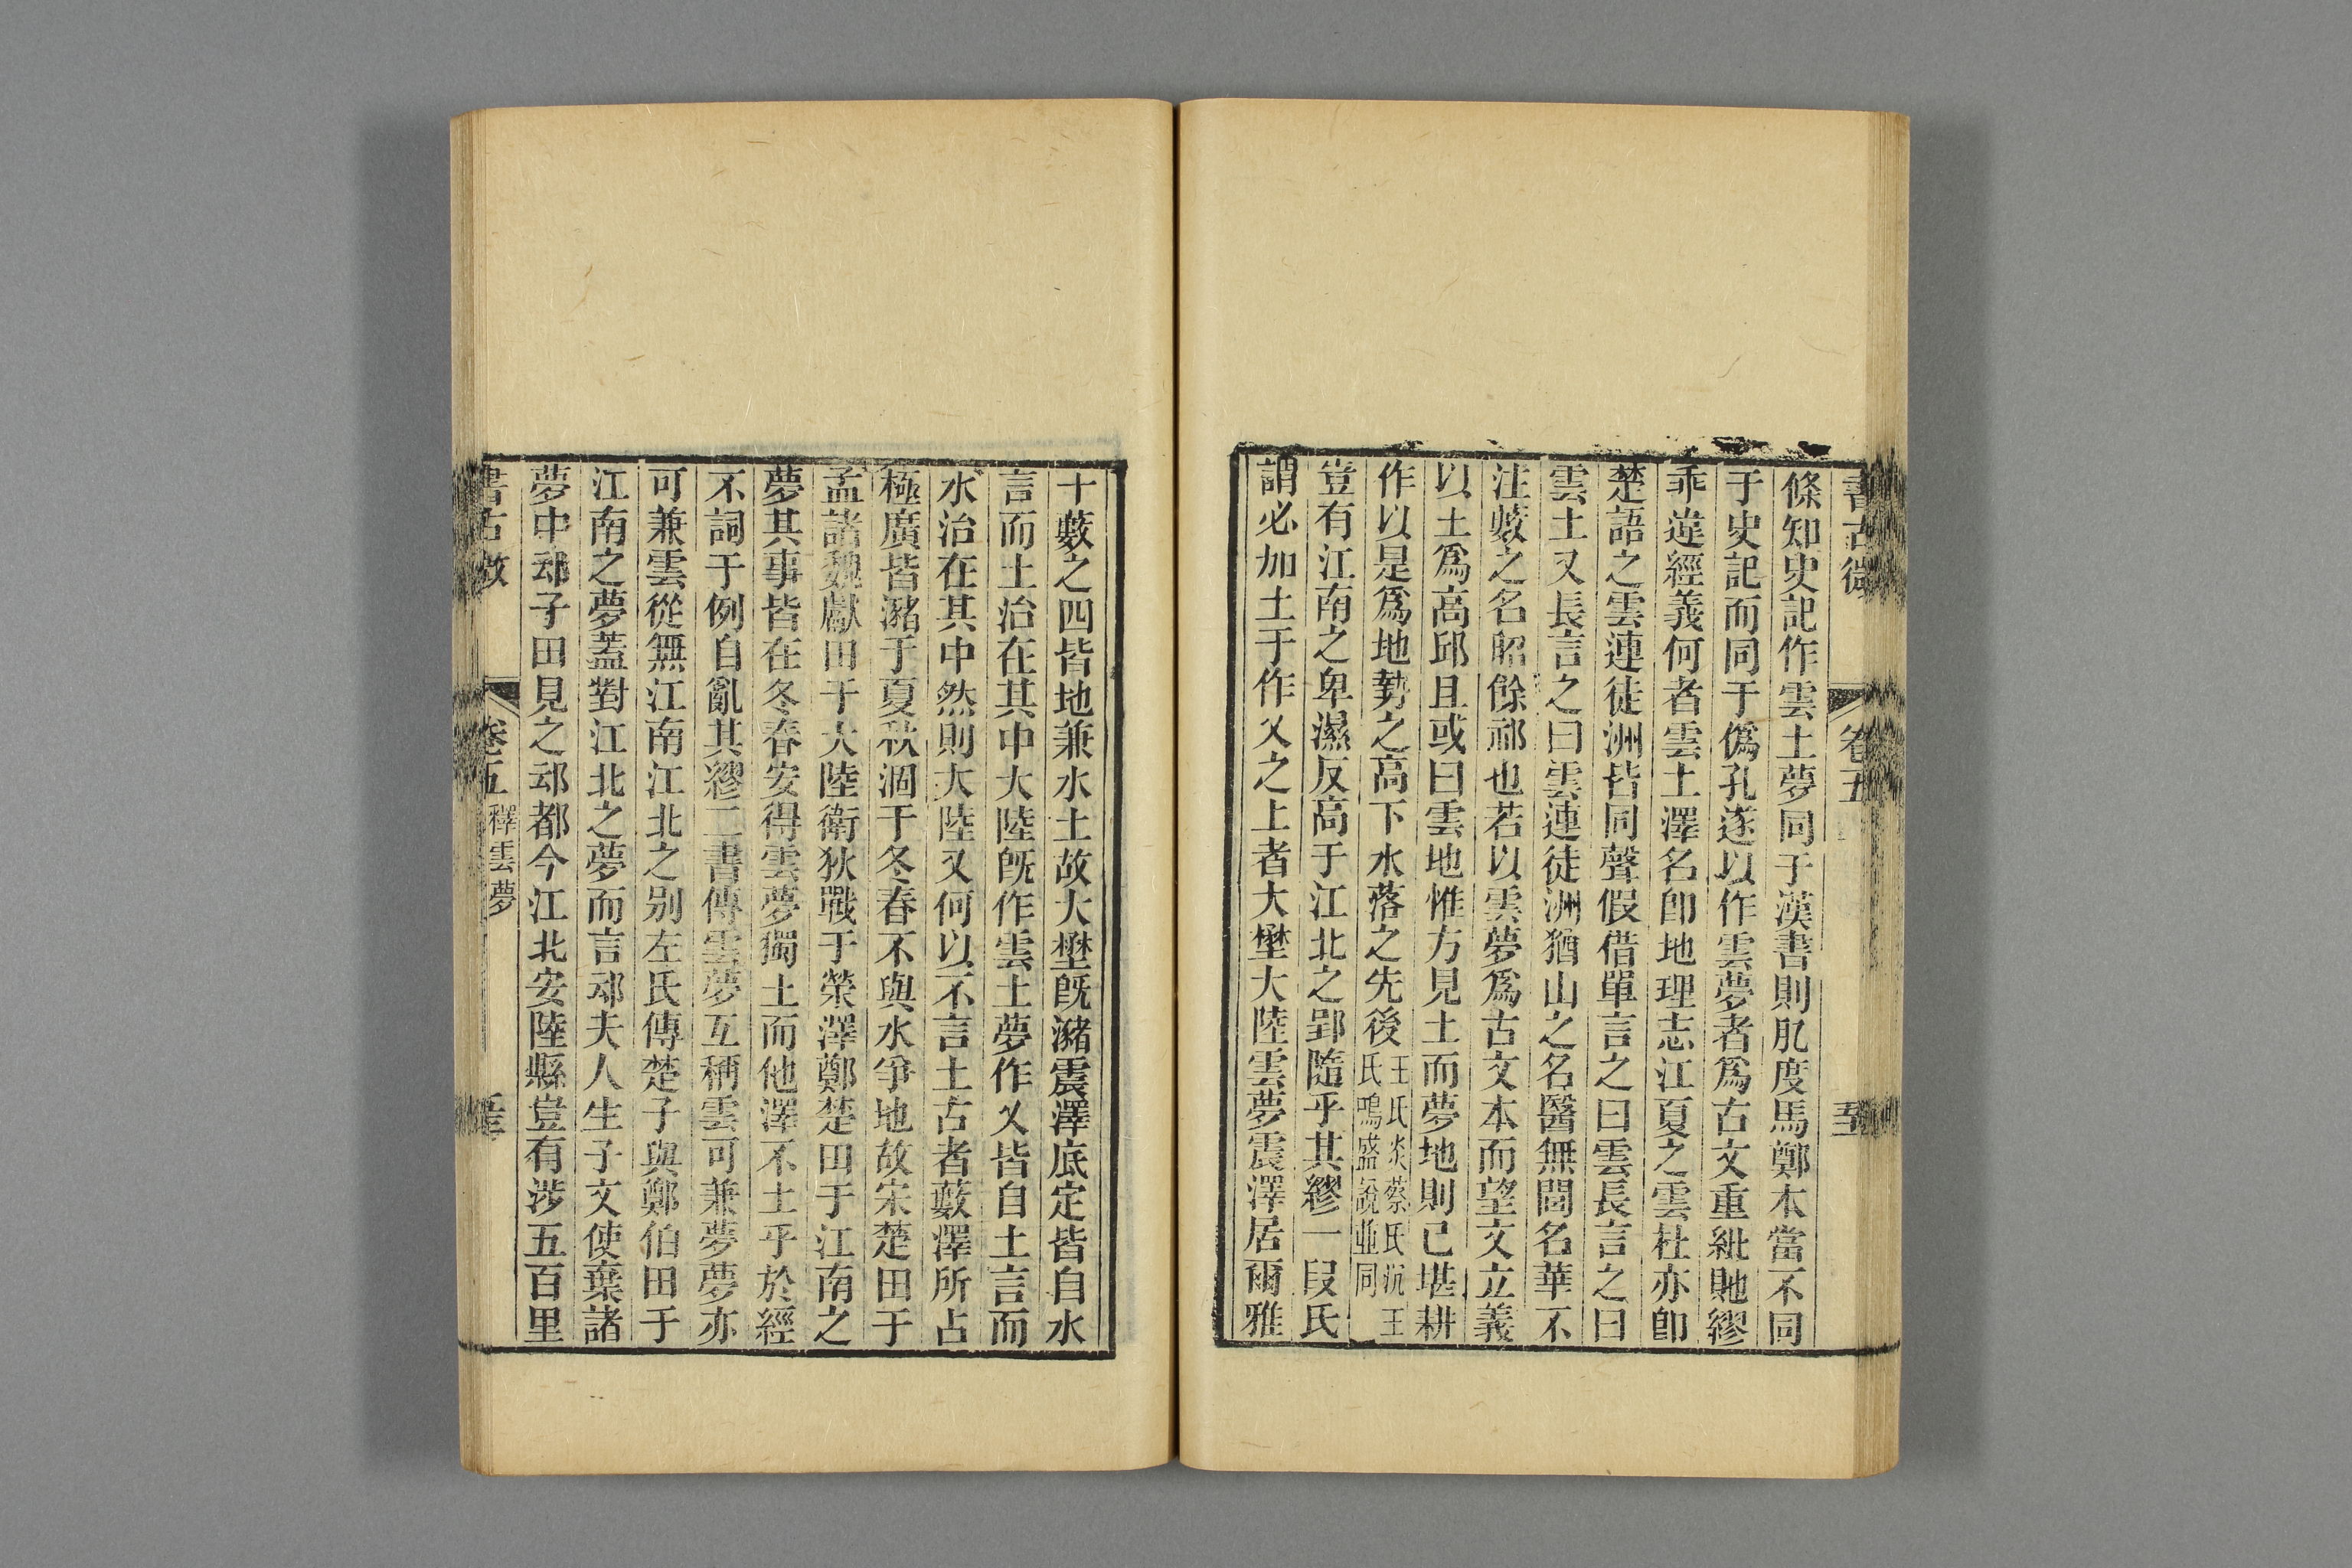 書古微
卷五
條知史記作雲土夢同于漢書則肊度馬鄭本當不同
于史記而同于僞孔遂以作雲夢者爲古文重紕貤繆
乖違經義何者雲土澤名卽地理志江夏之雲杜亦卽
楚語之雲連徒洲皆同聲假借單言之曰雲長言之曰
雲土又長言之曰雲連徒洲猶山之名醫無閭名華不
注藪之名昭餘祁也若以雲夢爲古文本而望文立義
以土爲高邱且或曰雲地惟方見土而夢地則已堪耕
作以是爲地勢之高下水落之先後王氏炎蔡氏沉王
氏鳴盛說並同
豈有江南之卑濕反高于江北之郢隨乎其繆一段氏
謂必加土于作乂之上者大壄大陸雲夢震澤居爾雅
十藪之四皆地兼水土故大壄旣瀦震澤底定皆自水
言而土治在其中大陸旣作雲土夢作乂皆自土言而
水治在其中然則大陸又何以不言土古者藪澤所占
極廣皆瀦于夏秋涸于冬春不與水爭地故宋楚田于
孟諸魏獻田于大陸衛狄戰于滎澤鄭楚田于江南之
夢其事皆在冬春安得雲夢獨土而他澤不土乎於經
不詞于例自亂其繆二書傳雲夢互稱雲可兼夢夢亦
可兼雲從無江南江北之別左氏傳楚子與鄭伯田于
江南之夢蓋對江北之夢而言䢵夫人生子文使棄諸
夢中䢵子田見之䢵都今江北安陸縣豈有涉五百里
書古微
卷五
釋雲夢